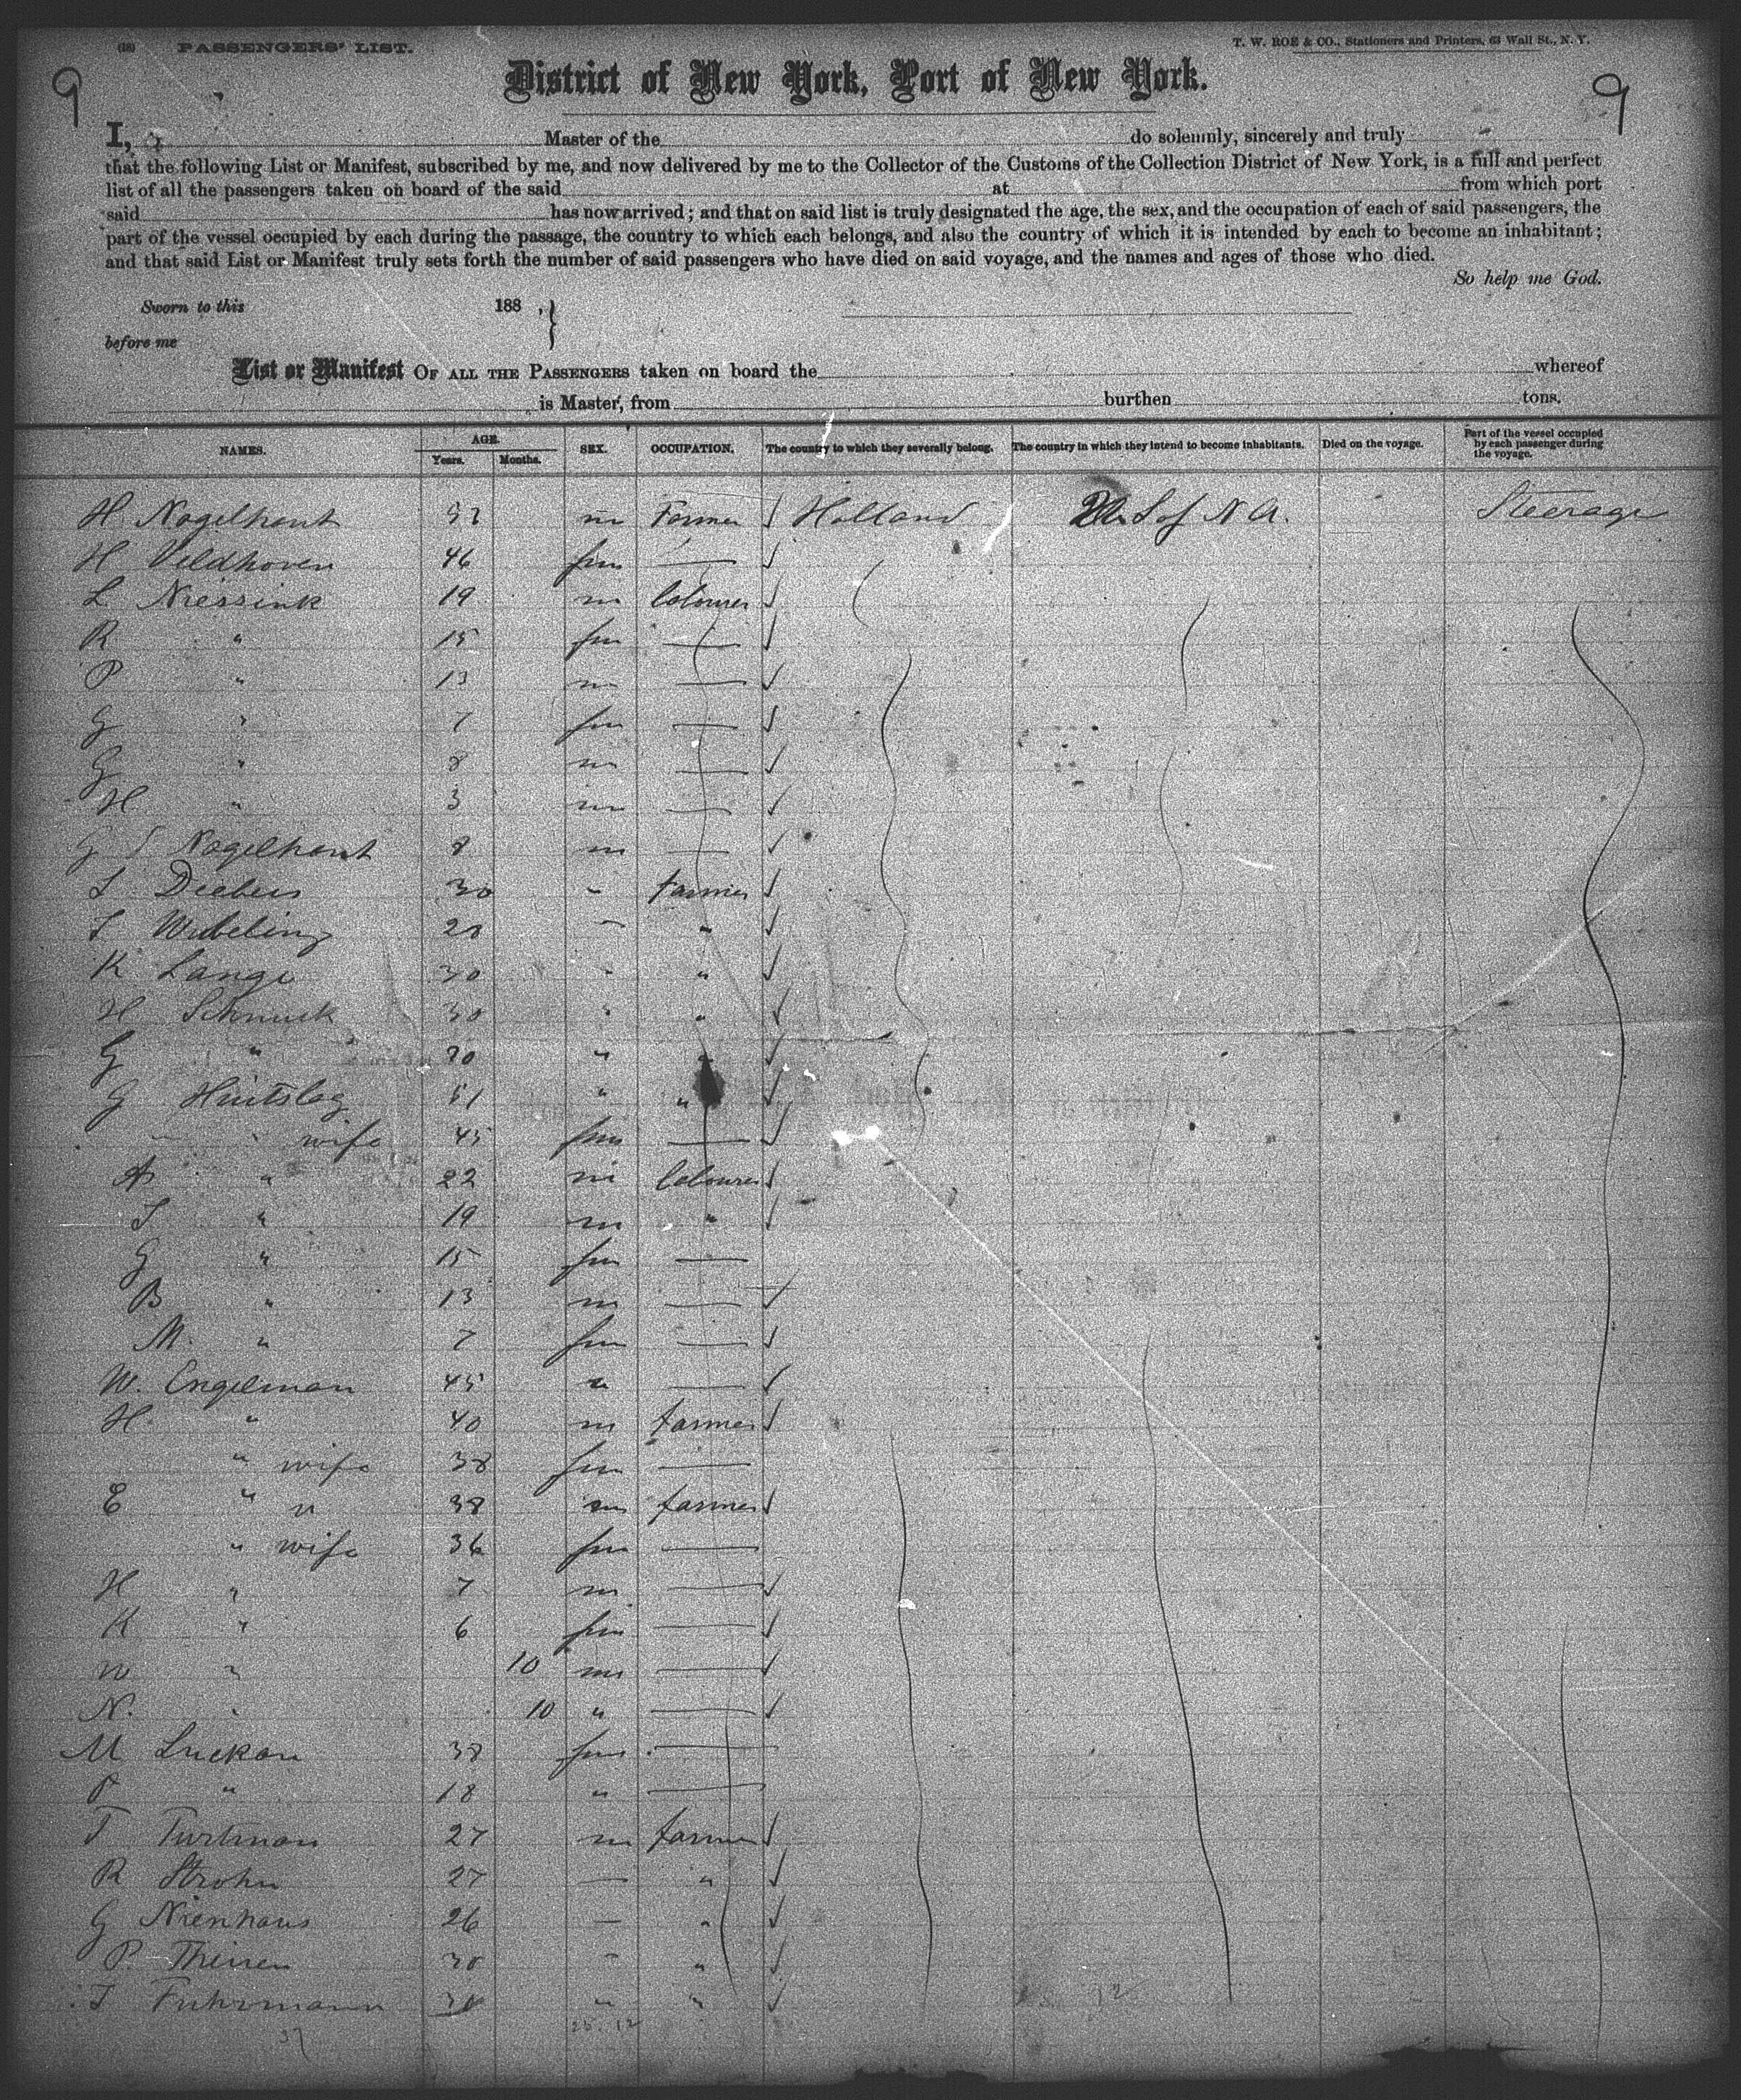 (18) PASSENGERS' LIST.
T. W. ROE & CO., Stationers and Printers, 63 Wall St., N. Y.
9
9
District of New York, Port of New York.
I, Master of the do solemnly, sincerely and truly
that the following List or Manifest, subscribed by me, and now delivered by me to the Collector of the Customs of the Collection District of New York, is a full and perfect
list of all the passengers taken on board of the said at from which port
said has now arrived; and that on said list is truly designated the age, the sex, and the occupation of each of said passengers, the
part of the vessel occupied by each during the passage, the country to which each belongs, and also the country of which it is intended by each to become an inhabitant;
and that said List or Manifest truly sets forth the number of said passengers who have died on said voyage, and the names and ages of those who died.
So help me God.
Sworn to this 188 , }
before me
List or Manifest OF ALL THE PASSENGERS taken on board the whereof
is Master, from burthen tons.
NAMES. AGE. Years. Months. SEX. OCCUPATION. The country to which they severally belong. The country in which they intend to become inhabitants. Died on the voyage. Part of the vessel occupied by each passenger during the voyage.
H Nagelhout m Farmer Holland U S of N A. Steerage
H Veldhoven 46 fm —
L Niessink 19 m Labourer
R " 15 fm —
P " 13 m —
G " 7 fm —
G " 8 m —
H " 3 m —
G Nagelhout 8 m —
30 " farmer
Wubeling 20 " "
K Lange 30 " "
H Schmuck 30 " "
G " 20 " "
G Huitslag 51 " "
" wife 45 fm —
A " 22 m Labourer
J " 19 m "
G " 15 fm —
B " 13 m —
M. " 7 fm —
W. Engelman 45 " —
H. " 40 m farmer
" wife 38 fm —
E " " 38 m farmer
" wife 36 fm —
H " 7 m —
K " 6 fm —
W " 10 m —
N. " 10 " —
M Luckan 38 fm —
P " 18 " —
T 27 m farmer
R Strohn 27 — "
G Nienhaus 26 — "
P. Theinen 30 " "
J Fuhrmann " "
37
25. 12